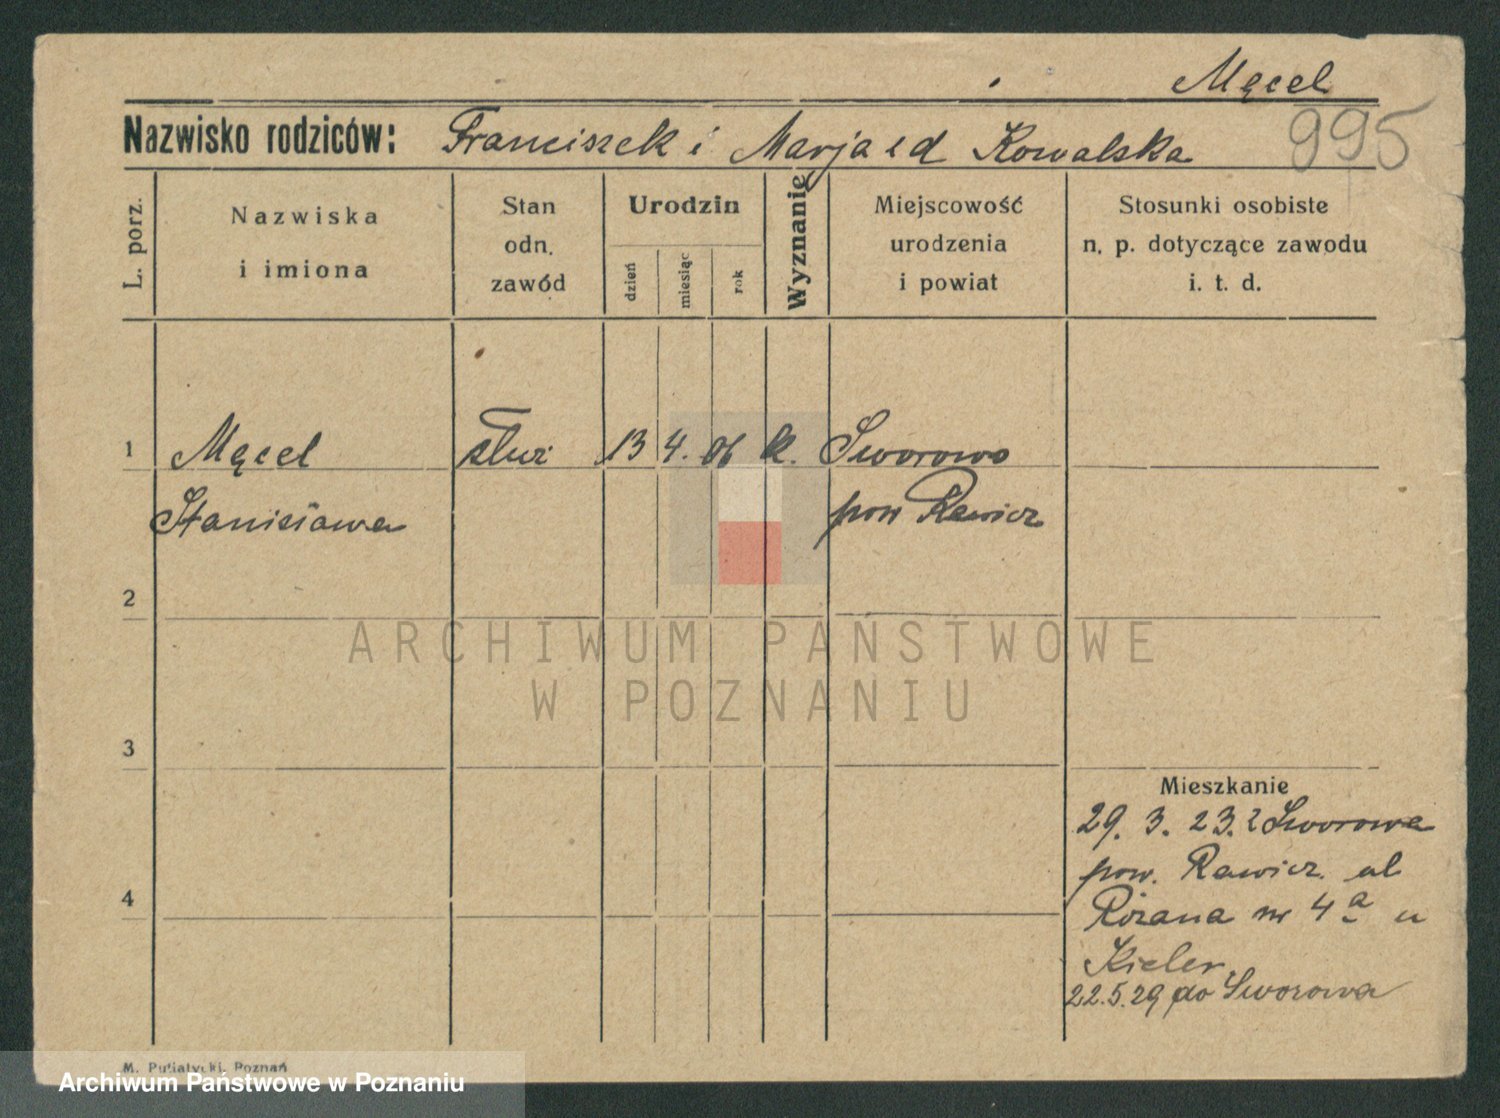 Męcel
995
Nazwisko rodziców: Franciszek i Marja z d Kowalska
L. porz.
Nazwiska
i imiona
Stan
odn.
zawód
Urodzin
dzień
miesiąc
rok
Wyznanie
Miejscowość
urodzenia
i powiat
Stosunki osobiste
n. p. dotyczące zawodu
i. t. d.
1 Męcel służ 13 4. 06 k. Sworowo
Stanisława pow Rawicz
2
ARCHIWUM PAŃSTWOWE
W POZNANIU
3
Mieszkanie
29. 3. 23. z Sworowa
pow. Rawicz. ul
4
Różana nr 4a u
Kieler.
22.5.29 do Sworowa
M. Putiatycki, Poznań
Archiwum Państwowe w Poznaniu